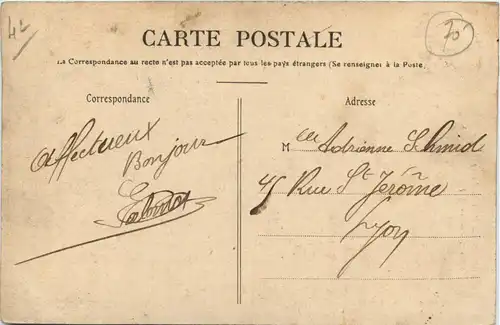 4-
20
CARTE POSTALE
La Correspondance au recto n'est pas acceptée par tous les pays étrangers (Se renseigner à la Poste)
Correspondance
Affectueux
Bonjour
Adresse
Melle Adrienne Schmid
45 Rue St Jérôme
Lyon